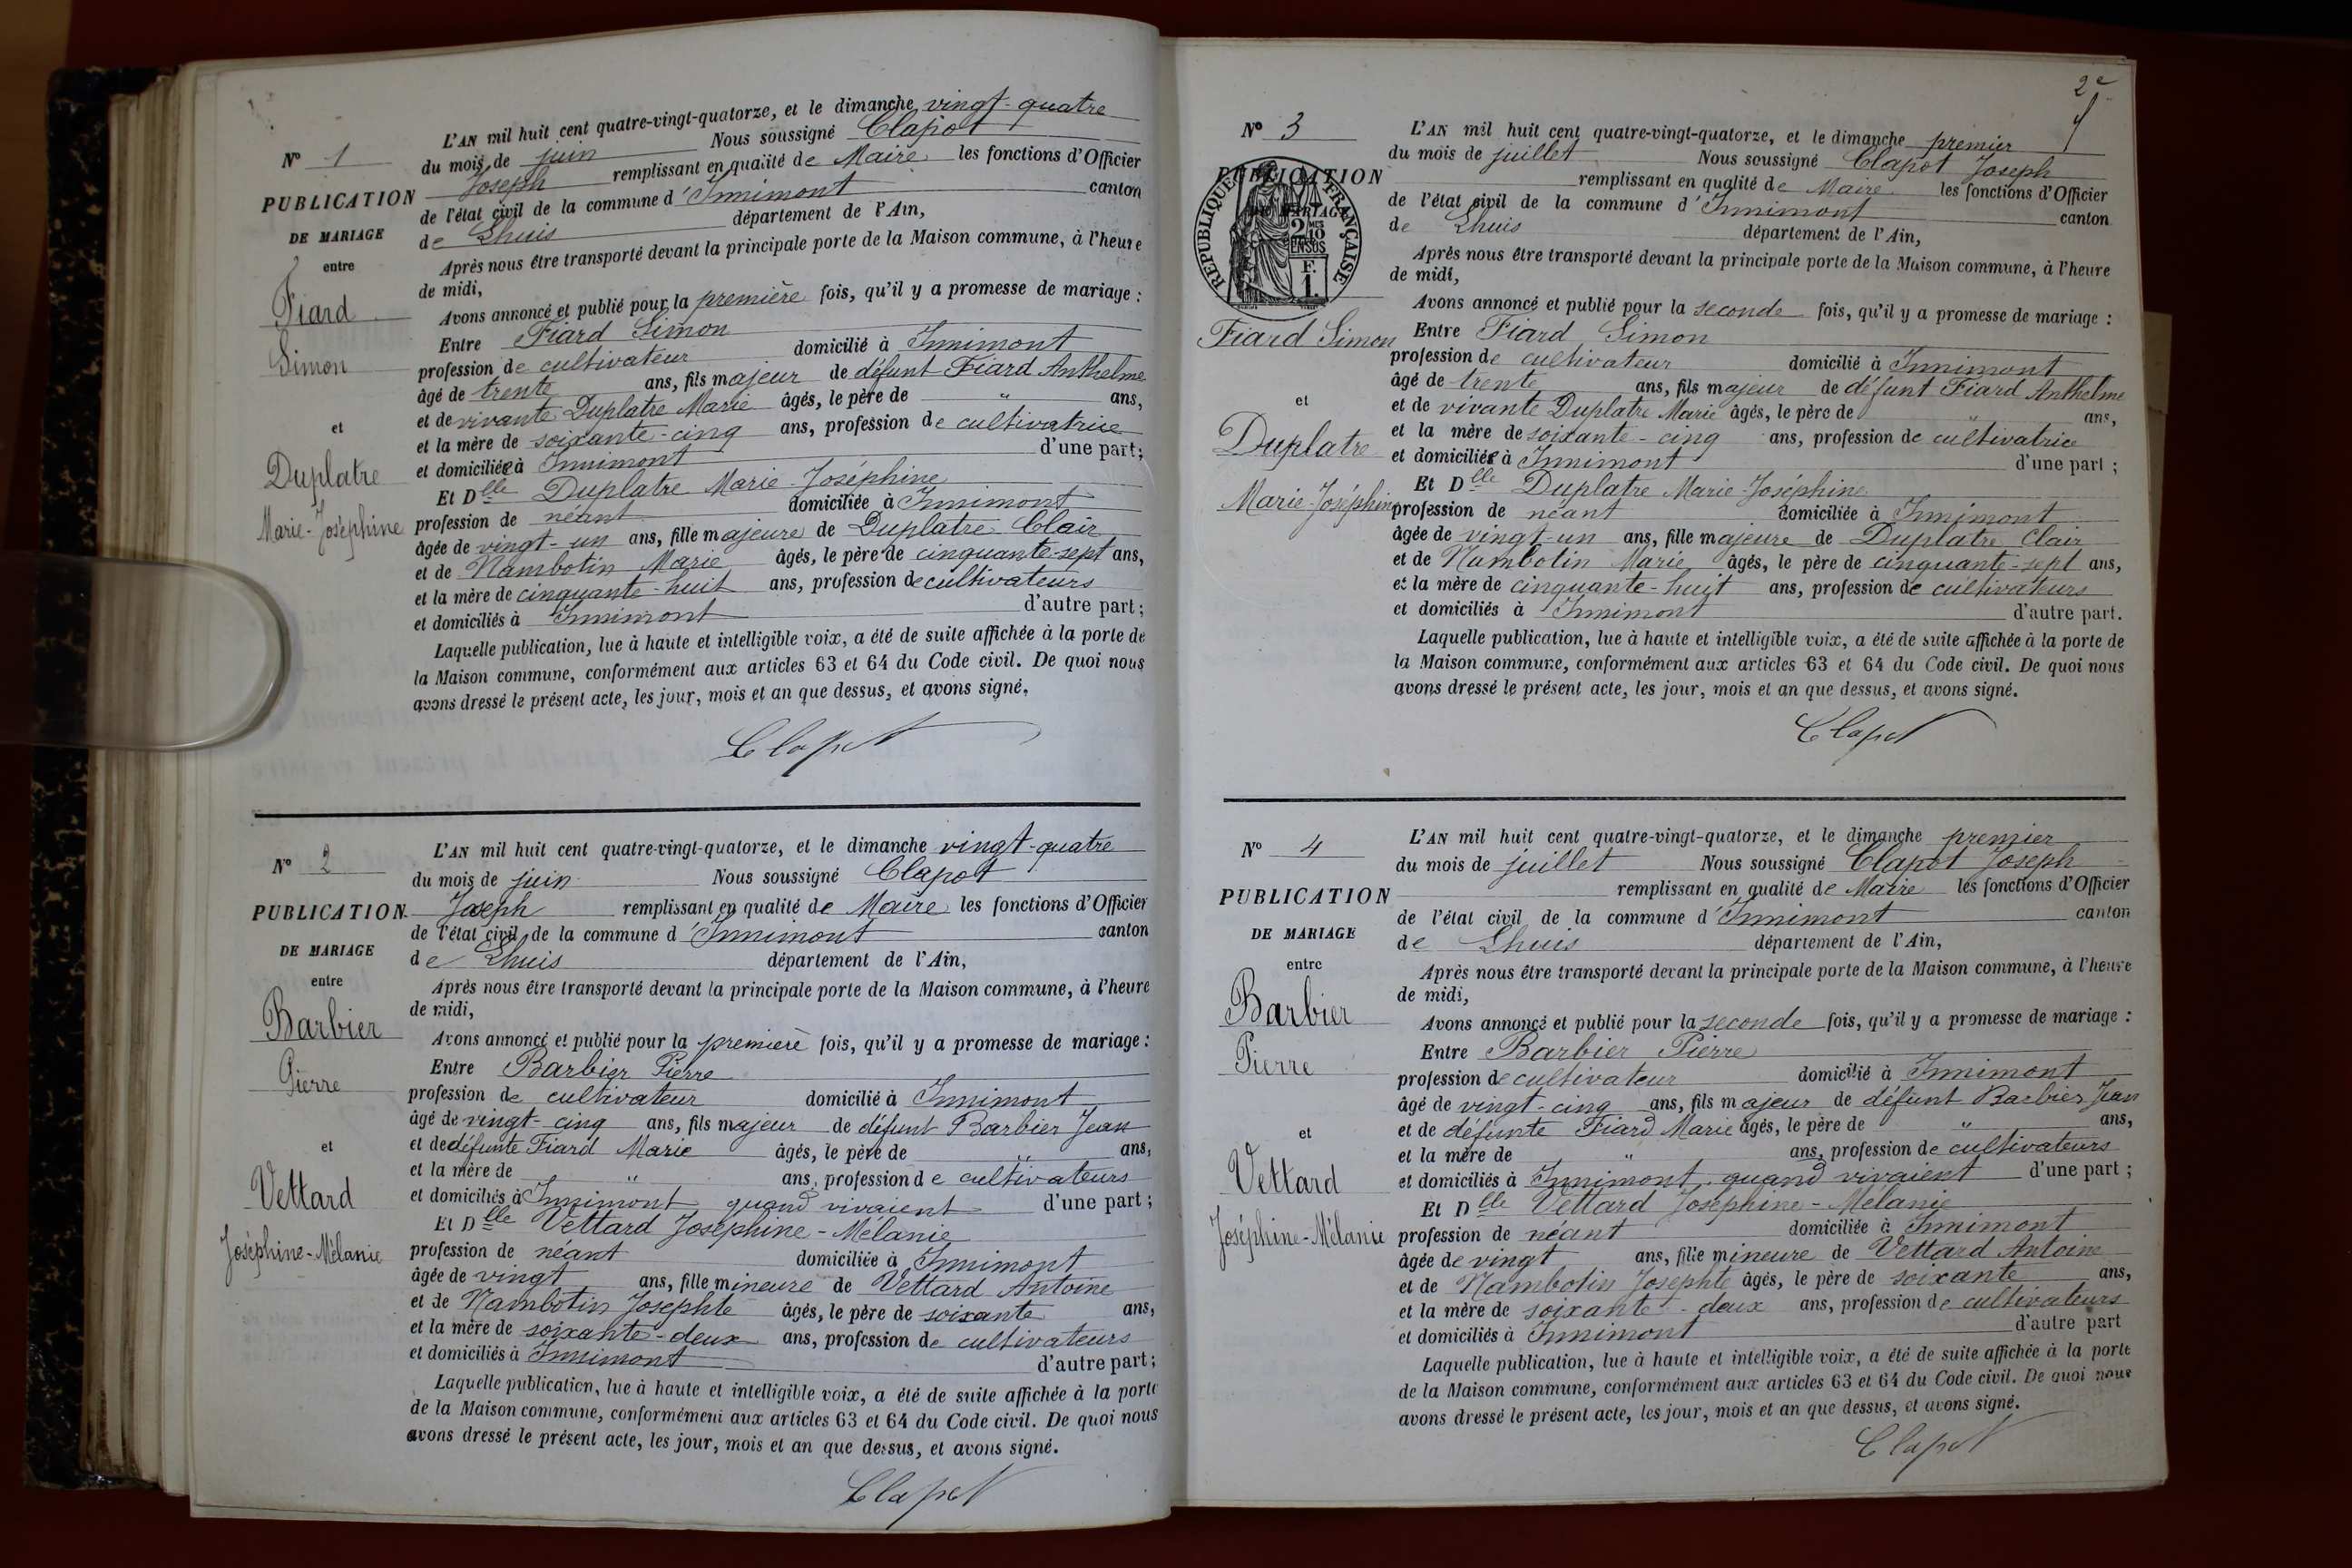 N° 1
PUBLICATION
DE MARIAGE
entre
Fiard
Simon
et
Duplatre
Marie-Joséphine
L'AN mil huit cent quatre-vingt-quatorze, et le dimanche vingt-quatre
du mois de juin Nous soussigné Clapot
Joseph remplissant en qualité de Maire les fonctions d'Officier
de l'état civil de la commune d'Innimont canton
de Lhuis département de l'Ain,
Après nous être transporté devant la principale porte de la Maison commune, à l'heure
de midi,
Avons annoncé et publié pour la première fois, qu'il y a promesse de mariage :
Entre Fiard Simon
profession de cultivateur domicilié à Innimont
âgé de trente ans, fils majeur de défunt Fiard Anthelme
et de vivante Duplatre Marie âgés, le père de " ans,
et la mère de soixante-cinq ans, profession de cultivatrice
et domiciliée à Innimont d'une part;
Et Dlle Duplatre Marie-Joséphine
profession de néant domiciliée à Innimont
âgée de vingt-un ans, fille majeure de Duplatre Clair
et de Nambotin Marie âgés, le père de cinquante-sept ans,
et la mère de cinquante-huit ans, profession de cultivateurs
et domiciliés à Innimont d'autre part;
Laquelle publication, lue à haute et intelligible voix, a été de suite affichée à la porte de
la Maison commune, conformément aux articles 63 et 64 du Code civil. De quoi nous
avons dressé le présent acte, les jour, mois et an que dessus, et avons signé.
Clapot
N° 2
PUBLICATION
DE MARIAGE
entre
Barbier
Pierre
et
Vettard
Joséphine-Mélanie
L'AN mil huit cent quatre-vingt-quatorze, et le dimanche vingt-quatre
du mois de juin Nous soussigné Clapot
Joseph remplissant en qualité de Maire les fonctions d'Officier
de l'état civil de la commune d'Innimont canton
de Lhuis département de l'Ain,
Après nous être transporté devant la principale porte de la Maison commune, à l'heure
de midi,
Avons annoncé et publié pour la première fois, qu'il y a promesse de mariage :
Entre Barbier Pierre
profession de cultivateur domicilié à Innimont
âgé de vingt-cinq ans, fils majeur de défunt Barbier Jean
et de défunte Fiard Marie âgés, le père de " ans,
et la mère de " ans, profession de cultivateurs
et domiciliés à Innimont quand vivaient d'une part;
Et Dlle Vettard Joséphine-Mélanie
profession de néant domiciliée à Innimont
âgée de vingt ans, fille mineure de Vettard Antoine
et de Nambotin Josephte âgés, le père de soixante ans,
et la mère de soixante-deux ans, profession de cultivateurs
et domiciliés à Innimont d'autre part;
Laquelle publication, lue à haute et intelligible voix, a été de suite affichée à la porte
de la Maison commune, conformément aux articles 63 et 64 du Code civil. De quoi nous
avons dressé le présent acte, les jour, mois et an que dessus, et avons signé.
Clapot
2e
N° 3
PUBLICATION
DE MARIAGE
RÉPUBLIQUE FRANÇAISE
2 10
EN SUS
F.
1.
Fiard Simon
et
Duplatre
Marie-Joséphine
L'AN mil huit cent quatre-vingt-quatorze, et le dimanche premier
du mois de juillet Nous soussigné Clapot Joseph
remplissant en qualité de Maire les fonctions d'Officier
de l'état civil de la commune d'Innimont canton
de Lhuis département de l'Ain,
Après nous être transporté devant la principale porte de la Maison commune, à l'heure
de midi,
Avons annoncé et publié pour la seconde fois, qu'il y a promesse de mariage :
Entre Fiard Simon
profession de cultivateur domicilié à Innimont
âgé de trente ans, fils majeur de défunt Fiard Anthelme
et de vivante Duplatre Marie âgés, le père de " ans,
et la mère de soixante-cinq ans, profession de cultivatrice
et domiciliée à Innimont d'une part ;
Et Dlle Duplatre Marie-Joséphine
profession de néant domiciliée à Innimont
âgée de vingt-un ans, fille majeure de Duplatre Clair
et de Nambotin Marie âgés, le père de cinquante-sept ans,
et la mère de cinquante-huit ans, profession de cultivateurs
et domiciliés à Innimont d'autre part.
Laquelle publication, lue à haute et intelligible voix, a été de suite affichée à la porte de
la Maison commune, conformément aux articles 63 et 64 du Code civil. De quoi nous
avons dressé le présent acte, les jour, mois et an que dessus, et avons signé.
Clapot
N° 4
PUBLICATION
DE MARIAGE
entre
Barbier
Pierre
et
Vettard
Joséphine-Mélanie
L'AN mil huit cent quatre-vingt-quatorze, et le dimanche premier
du mois de juillet Nous soussigné Clapot Joseph
remplissant en qualité de Maire les fonctions d'Officier
de l'état civil de la commune d'Innimont canton
de Lhuis département de l'Ain,
Après nous être transporté devant la principale porte de la Maison commune, à l'heure
de midi,
Avons annoncé et publié pour la seconde fois, qu'il y a promesse de mariage :
Entre Barbier Pierre
profession de cultivateur domicilié à Innimont
âgé de vingt-cinq ans, fils majeur de défunt Barbier Jean
et de défunte Fiard Marie âgés, le père de " ans,
et la mère de " ans, profession de cultivateurs
et domiciliés à Innimont quand vivaient d'une part ;
Et Dlle Vettard Joséphine-Mélanie
profession de néant domiciliée à Innimont
âgée de vingt ans, fille mineure de Vettard Antoine
et de Nambotin Josephte âgés, le père de soixante ans,
et la mère de soixante-deux ans, profession de cultivateurs
et domiciliés à Innimont d'autre part
Laquelle publication, lue à haute et intelligible voix, a été de suite affichée à la porte
de la Maison commune, conformément aux articles 63 et 64 du Code civil. De quoi nous
avons dressé le présent acte, les jour, mois et an que dessus, et avons signé.
Clapot